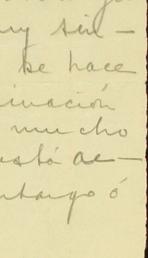 uy sin-
se hace
inación
mucho
está ac-
ntargo ó